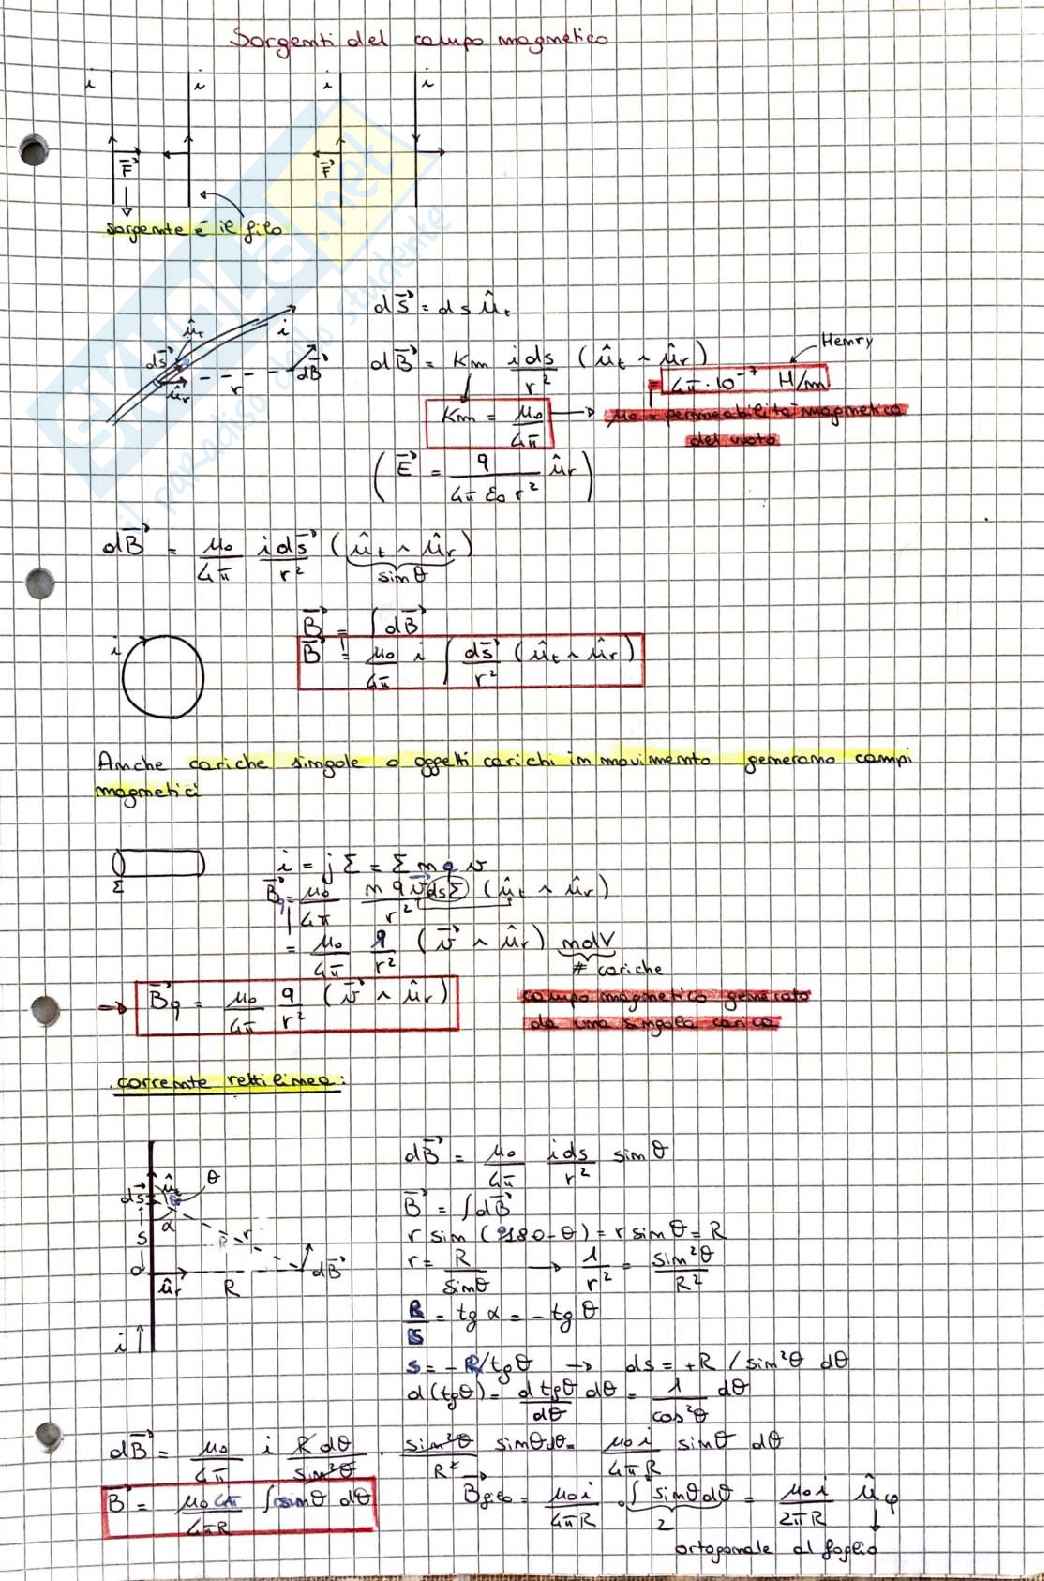 Sorgenti del campo magnetico
i i i i
F⃗ F⃗
sorgente è il filo
ds⃗ = ds û_t
i
û_t
ds⃗
dB⃗
û_r r
Henry
dB⃗ = Km i ds / r² (û_t ∧ û_r)
= 4π·10⁻⁷ H/m
Km = μ₀ / 4π → μ₀ = permeabilità magnetica
del vuoto
(E⃗ = q / 4π ε₀ r² û_r)
dB⃗ = μ₀ / 4π i ds⃗ / r² (û_t ∧ û_r)
sinθ
B⃗ = ∫dB⃗
i
B⃗ = μ₀ / 4π i ∫ ds⃗ / r² (û_t ∧ û_r)
Anche cariche singole o oggetti carichi in movimento generano campi
magnetici
Σ
i = jΣ = Σ n q v
B⃗q = μ₀ / 4π n q v ds Σ / r² (û_t ∧ û_r)
= μ₀ / 4π q / r² (v⃗ ∧ û_r) ndV
# cariche
⇒ B⃗q = μ₀ / 4π q / r² (v⃗ ∧ û_r)
campo magnetico generato
da una singola carica
corrente rettilinea:
dB⃗ = μ₀ / 4π i ds / r² sinθ
θ
ds⃗ û_t
α
s r
o
û_r R dB⃗
i
B⃗ = ∫dB⃗
r sin (180-θ) = r sinθ = R
r = R / sinθ → 1 / r² = sin²θ / R²
R / s = tgα = -tgθ
s = -R/tgθ → ds = +R / sin²θ dθ
d(tgθ) = d tgθ / dθ dθ = 1 / cos²θ dθ
dB⃗ = μ₀ / 4π i R dθ / sin²θ sin²θ / R² sinθ dθ = μ₀ i / 4πR sinθ dθ
B⃗ = / 4πR ∫ sinθ dθ
B⃗filo = μ₀ i / 4πR ∫ sinθdθ = μ₀ i / 2πR û_φ
2
ortogonale al foglio